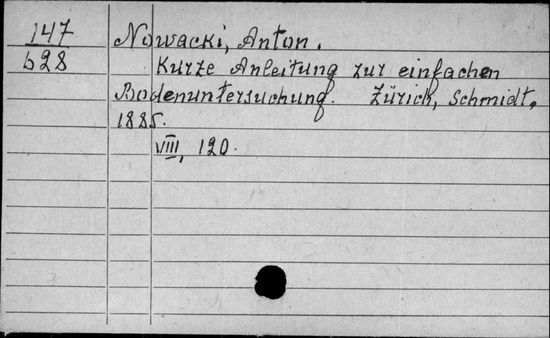 147 Nowacki, Anton.
b28 Kurze Anleitung zur einfachen
Bodenuntersuchung. Zürich, Schmidt,
1885.
VIII, 120.